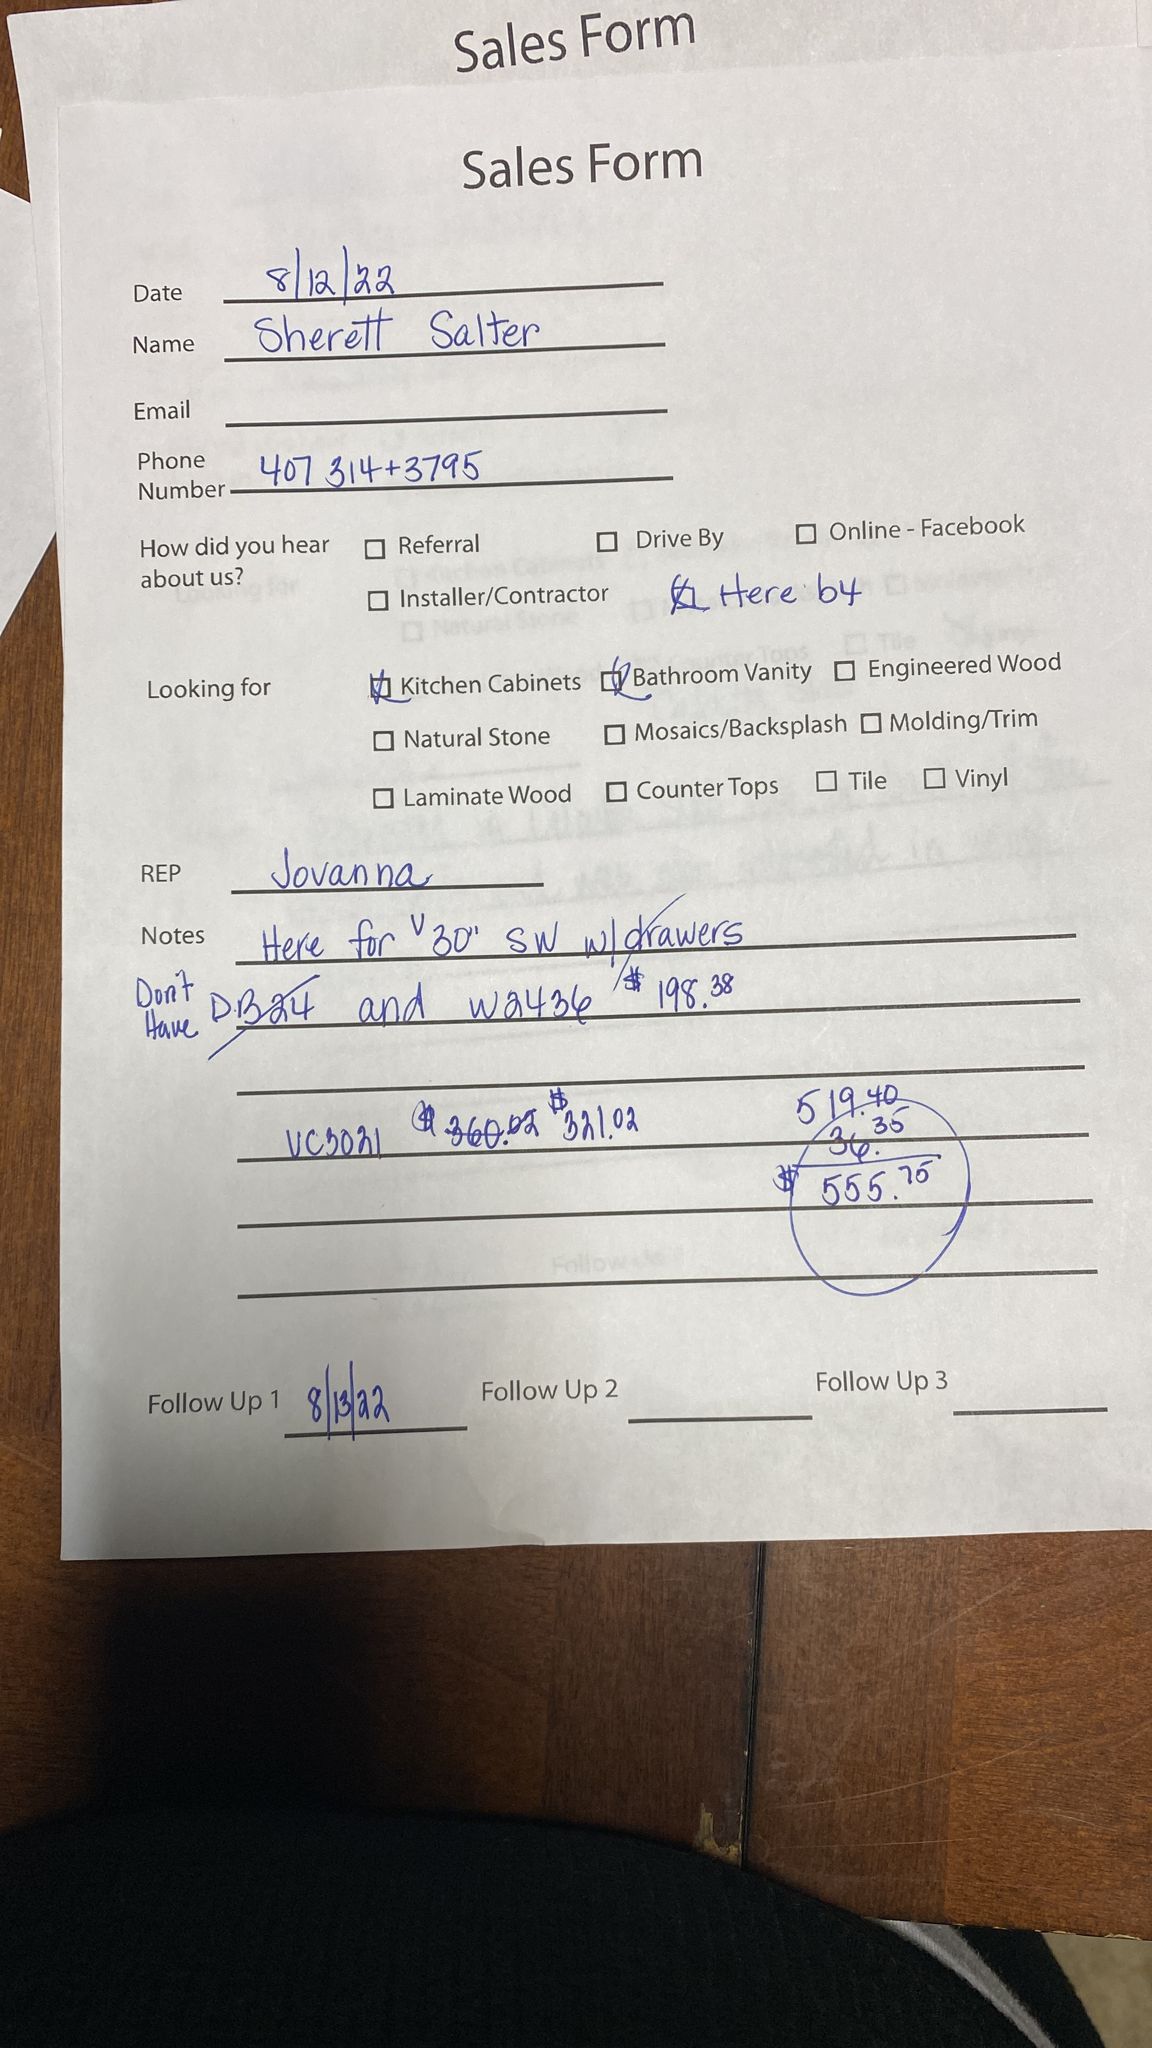 Sales Form
Sales Form
Date 8/12/22
Name Sherett Salter
Email
Phone
Number 407 314+3795
How did you hear about us? ☐ Referral ☐ Drive By ☐ Online - Facebook
☐ Installer/Contractor ☑ Here b4
Looking for ☑ Kitchen Cabinets ☑ Bathroom Vanity ☐ Engineered Wood
☐ Natural Stone ☐ Mosaics/Backsplash ☐ Molding/Trim
☐ Laminate Wood ☐ Counter Tops ☐ Tile ☐ Vinyl
REP Jovanna
Notes Here for V30" SW w/drawers
Don't Have DB24 and W2436 $198.38
519.40
VC3021 $360.02 $321.02 36.35
$555.75
Follow Up 1 8/13/22 Follow Up 2 Follow Up 3